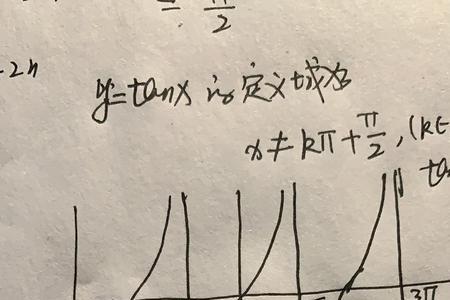 = π/2
-2π
y=tanx 的定义域为
x≠kπ+π/2,(k∈
ta
3π